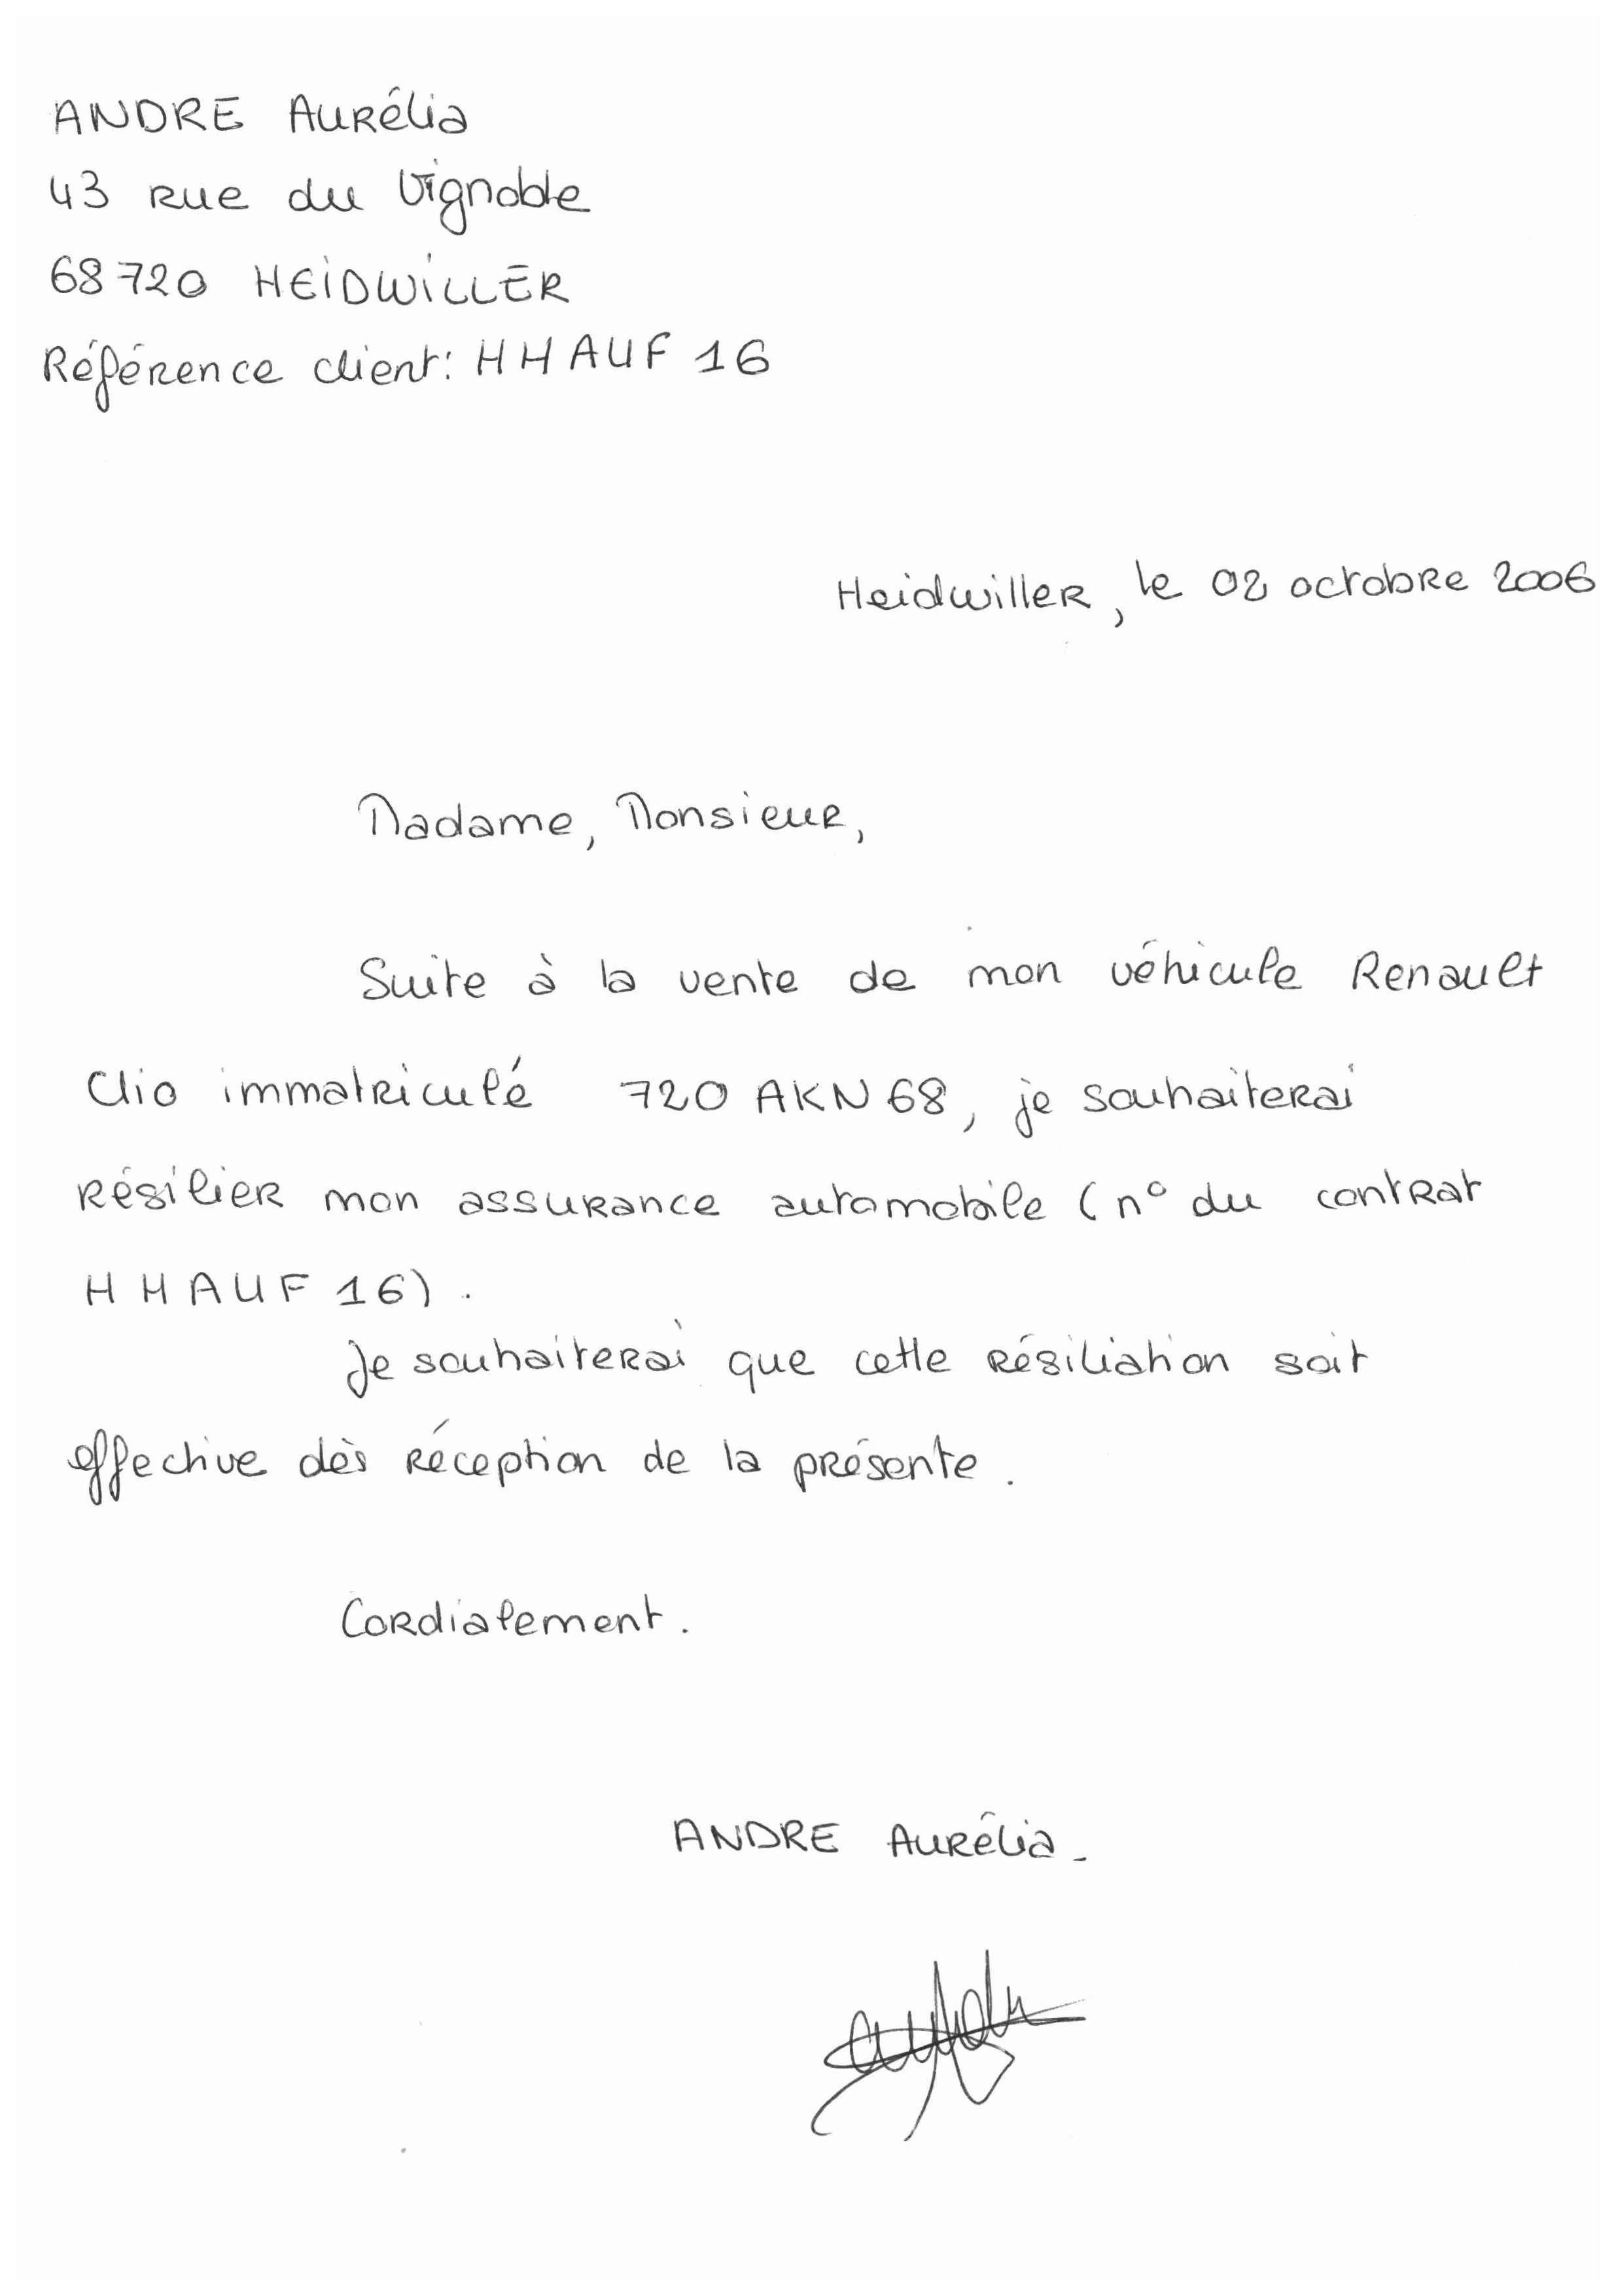 ANDRE Aurélia
43 rue du Vignoble
68720 HEIDWILLER
Référence client: HHAUF 16
Heidwiller, le 02 octobre 2006
Madame, Monsieur,
Suite à la vente de mon véhicule Renault
Clio immatriculé 720 AKN 68, je souhaiterai
résilier mon assurance automobile (n° du contrat
HHAUF 16).
Je souhaiterai que cette résiliation soit
effective dès réception de la présente.
Cordialement.
ANDRE Aurélia_